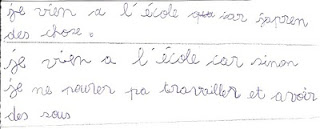 je vien a l'école car japren
des chose.
je vien a l'école car sinon
je ne pourer pa travailler et avoir
des sous